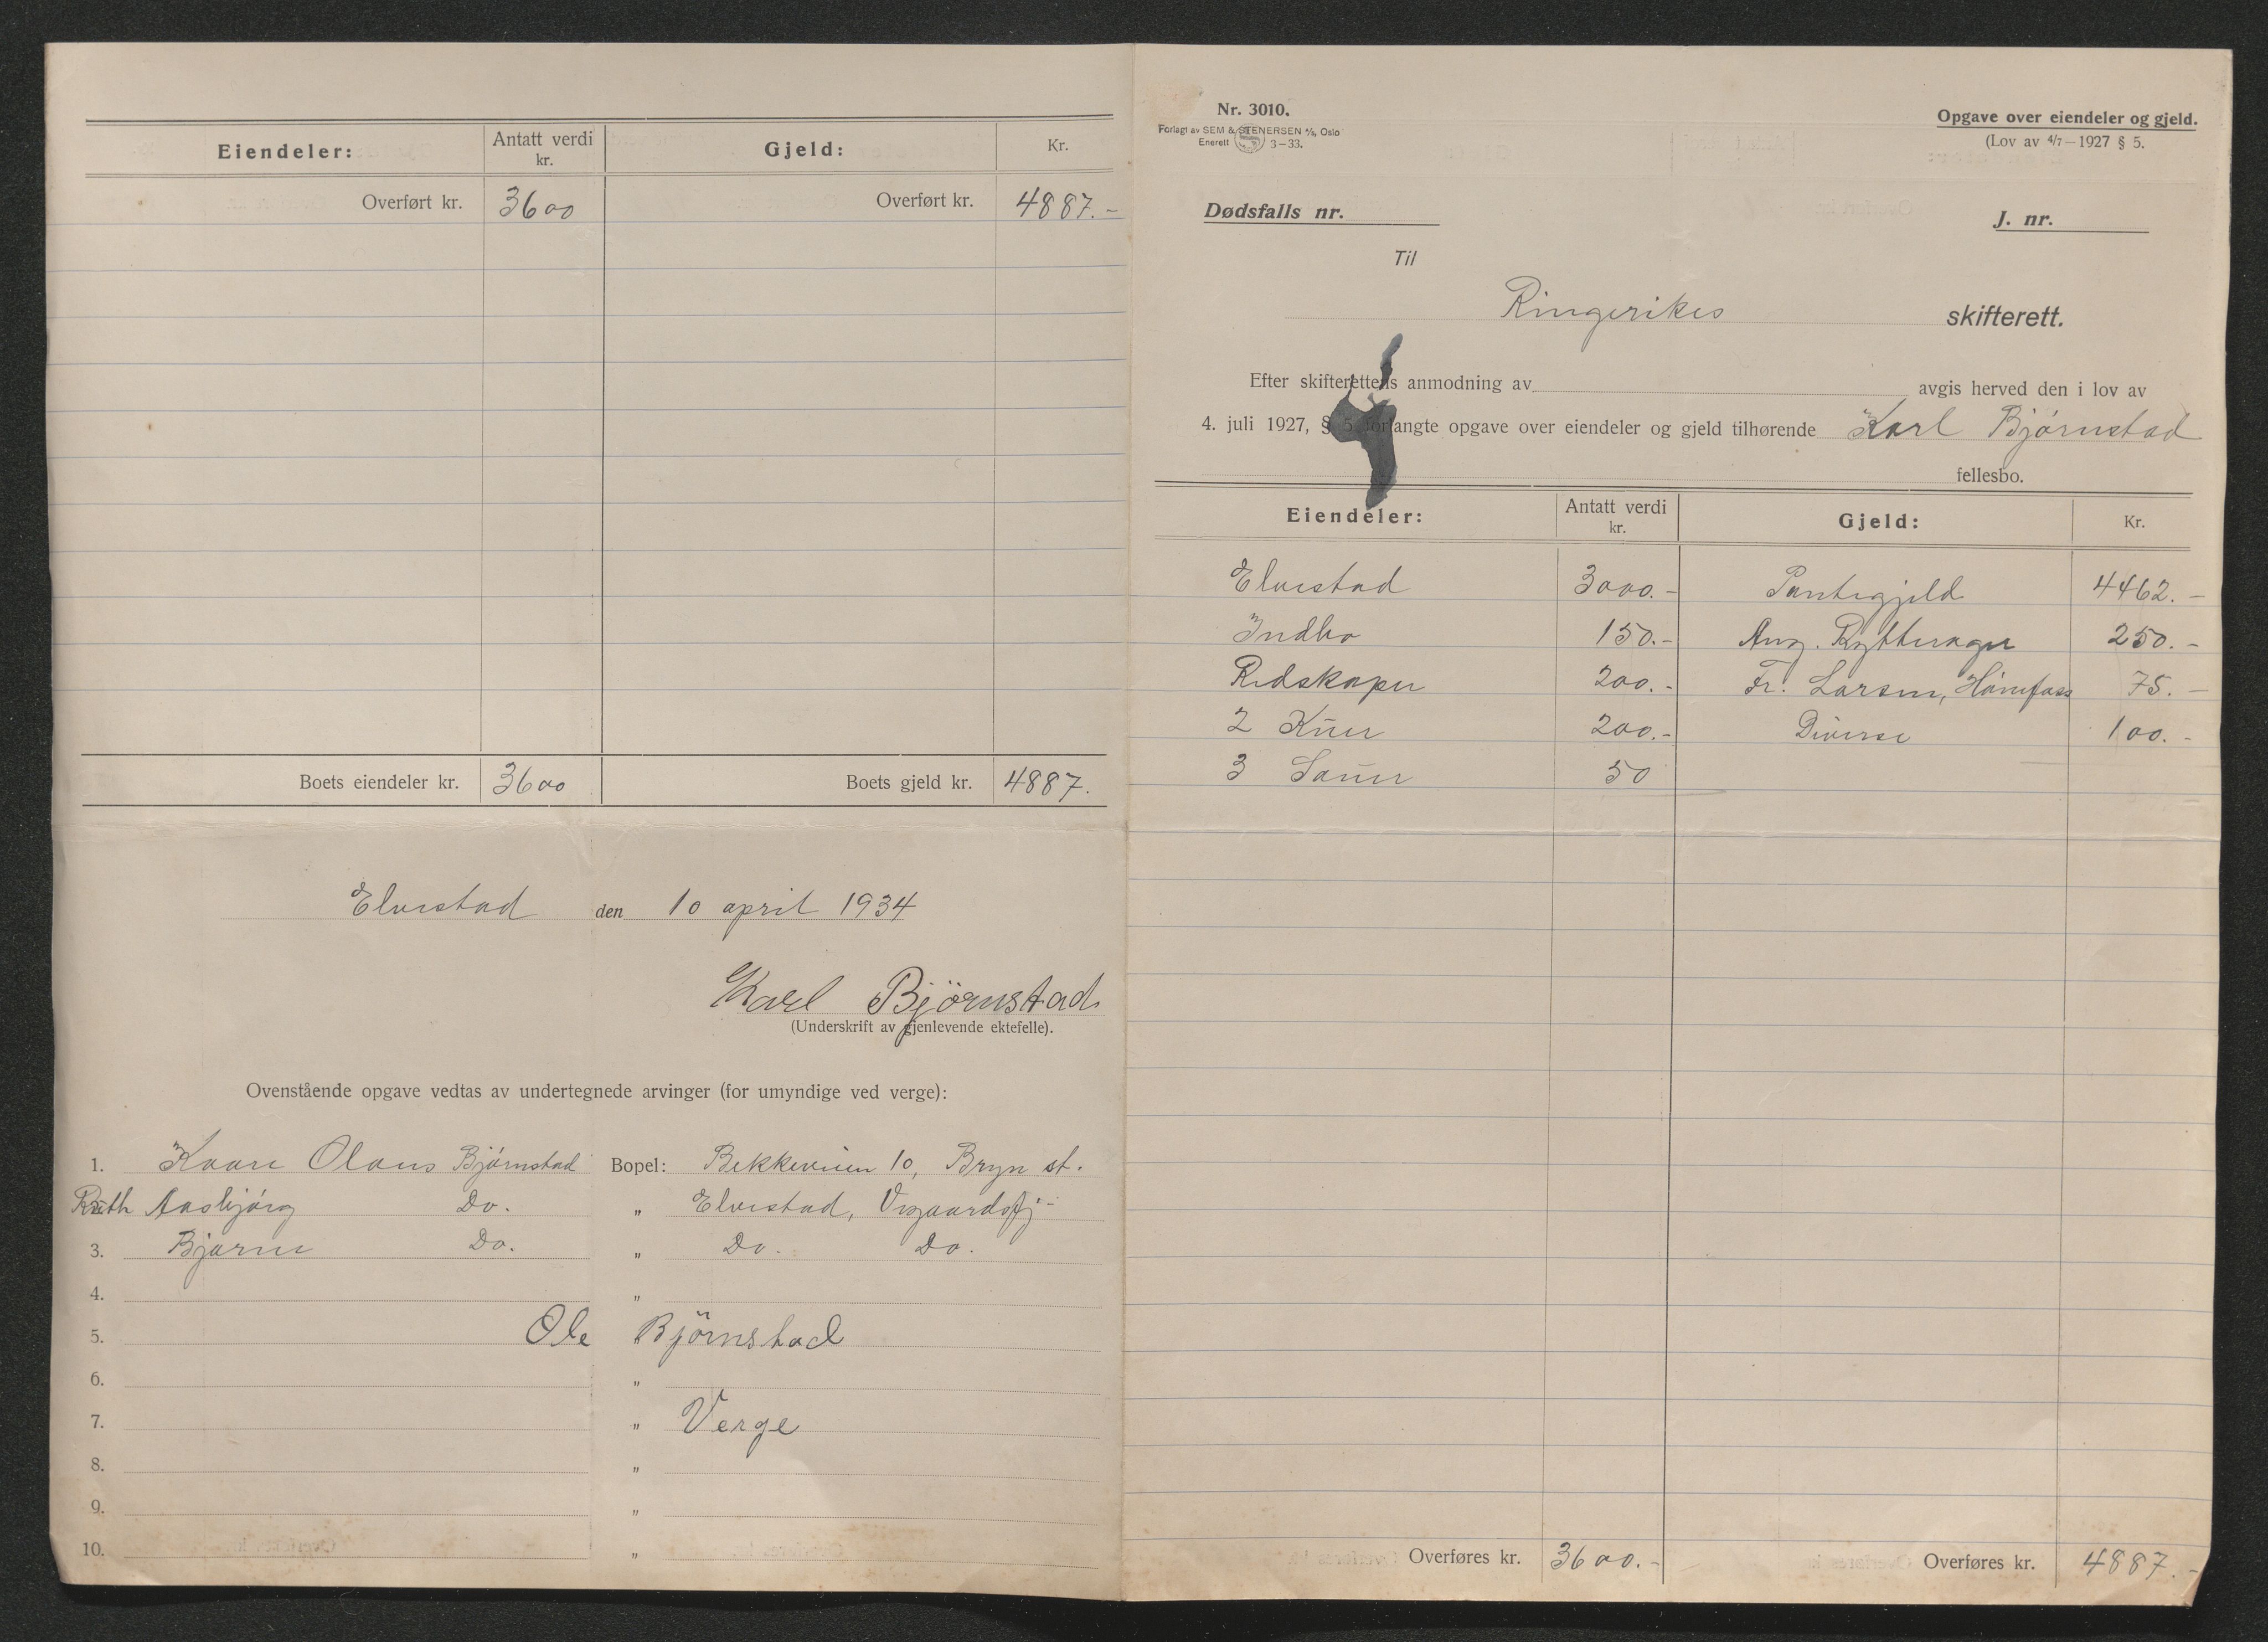 Eiendeler: Antatt verdi kr. Gjeld: Kr.
Overført kr. 3600 Overført kr. 4887.-
Boets eiendeler kr. 3600 Boets gjeld kr. 4887.
Elvestad den 10 april 1934
Karl Björnstad
(Underskrift av gjenlevende ektefelle).
Ovenstående opgave vedtas av undertegnede arvinger (for umyndige ved verge):
1. Kaare Olaus Bjørnstad Bopel: Bekkeveien 10, Bryn st.
Ruth Aasbjørg Do. " Elvestad,
3. Bjarne Do. " Do. Do.
4. "
5. Ole Björnstad
6. "
7. " Verge
8. "
9. "
10. "
Nr. 3010.
Forlagt av SEM & STENERSEN A/S, Oslo
Enerett 3-33.
Opgave over eiendeler og gjeld.
(Lov av 4/7-1927 § 5.
Dødsfalls nr. J. nr.
Til
Ringerikes skifterett.
Efter skifterettens anmodning av avgis herved den i lov av
4. juli 1927, § 5 forlangte opgave over eiendeler og gjeld tilhørende Karl Bjørnstad
fellesbo.
Eiendeler: Antatt verdi kr. Gjeld: Kr.
Elvestad 3000.- Pantegjeld 4462.-
Indbo 150.- Aug. Rytterager 250.-
Redskaper 200.- Fr. Larsen, Hønefoss 75.-
2 Kuer 200.- Diverse 100.-
3 Sauer 50
Overføres kr. 3600.- Overføres kr. 4887.-